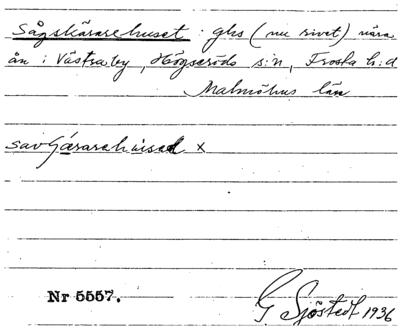 Sågskärarehuset : ghs (nu rivet) nära
ån i Västraby, Högseröds s:n, Frosta h:d
Malmöhus län
x
Nr 5557.
G Sjöstedt 1936